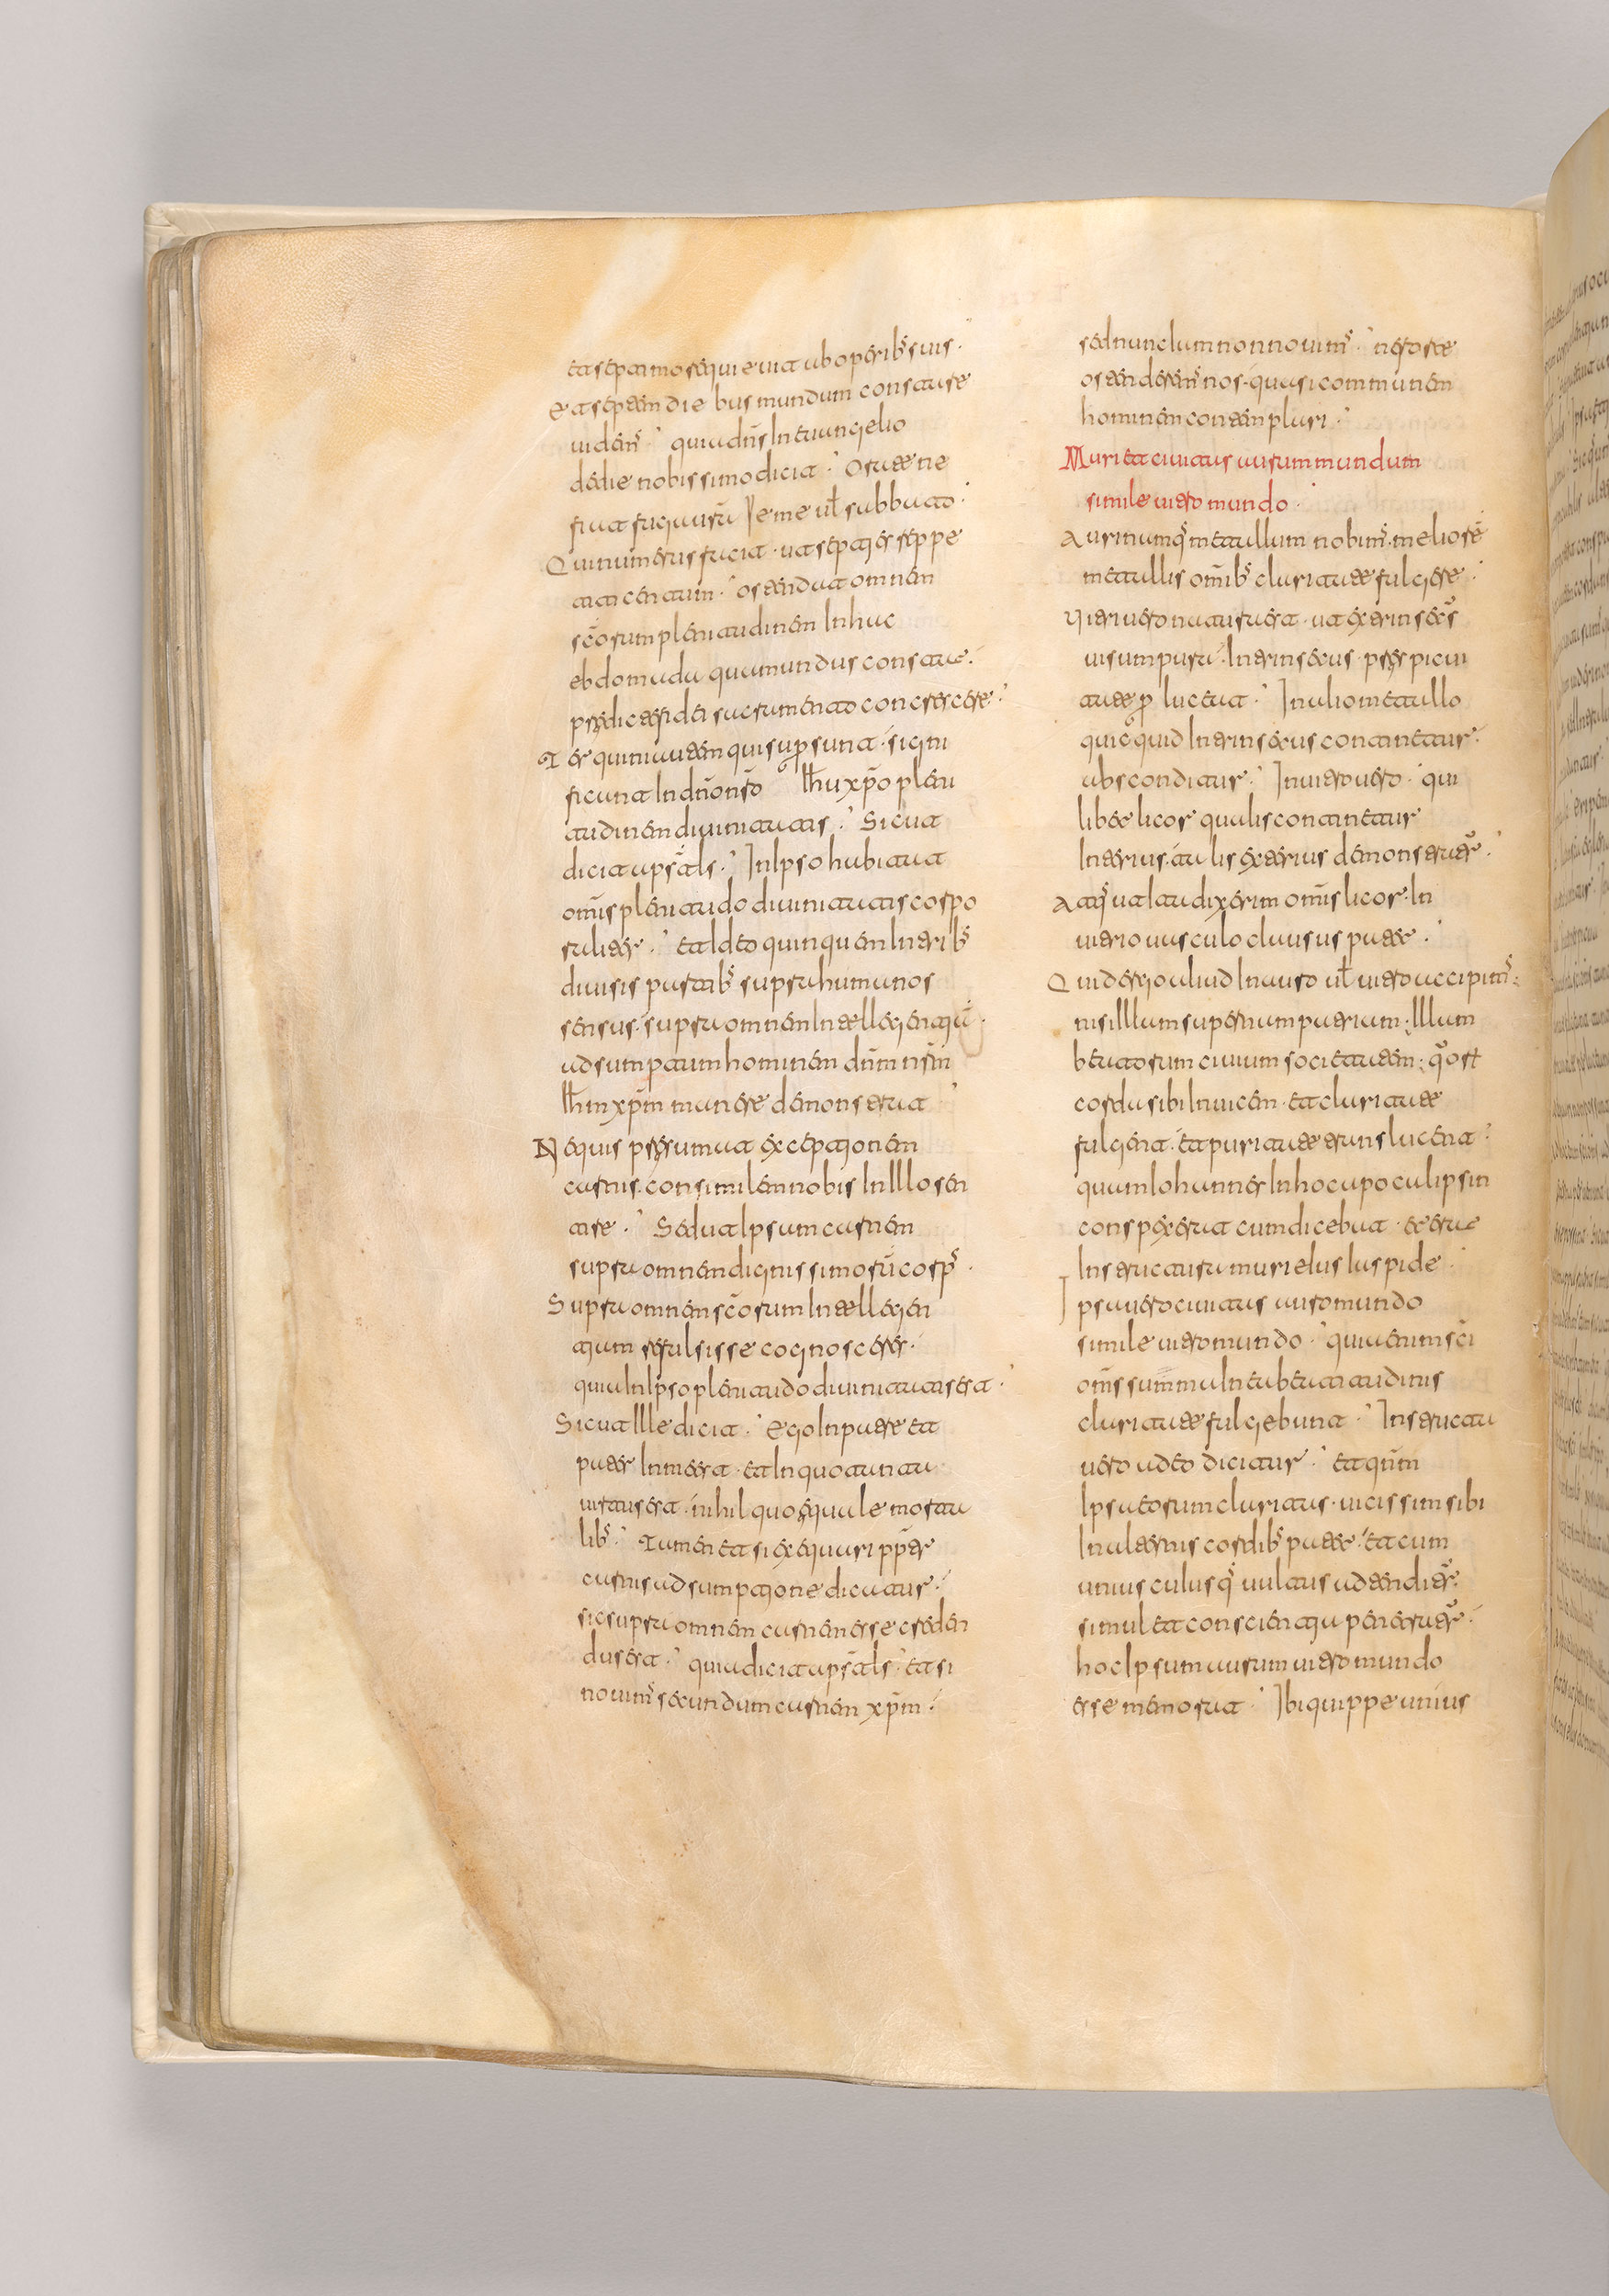 et septimo requiebit ab operibꝰ suis.
et septem diebus mundum constare
videmꝰ. quia dnŝ in evangelio
de die nobissimo dicit. orate ne
fiat fuga vr̄a ieme vl̄ sabbato.
Qui numerus facit. vt septies seppe
ticentum. ostendat omnem
sc̄orum plenitudinem in hac
ebdomada qua mundus constat.
predicate fidei sacramento concrescere.
Ter quini autem qui supersunt. signi
ficant in dn̄o nr̄o ihu xp̄o pleni
tudinem divinitatis. Sicut
dicit apst̄ls. In ipso habitat
om̄is plenitudo divinitatis corpo
raliter. et ideo quinquen in tribꝰ
divisis partibꝰ supra humanos
sensus. supra omnem intellegentiā.
adsumptum hominem dn̄m nsm̄
ihm xpm̄ munere demonstrat
Nequis presumat exceptionem
carnis. consimilem nobis in illo sen
tire. Sed ut ipsum carnem
supra omnem dignissimorū corprꝰ.
Supra omnem sc̄orum intellegen
tium refulsisse cognosceres.
quia in ipso plenitudo divinitatis est.
Sicut ille dicit. Ego in patre et
pater in me est. et in quo tanta
virtus est. nihil quoequale morta
libꝰ. Tamen etsi exequari ppter
carnis adsumptione dicatur.
sic supra omnem carnem esse creden
dus est. quia dicit apst̄ls. et si
novimꝰ secundum carnem xpm̄.
sed nunc iam non novimꝰ. ne forte
ostenderemꝰ nos. quasi communem
hominem contemplari.
Muri et civitas aurum mundum
simile vitro mundo.
Aurinumqꝰ metallum nobimꝰ. meliorē
metallis om̄ibꝰ claritate fulgere.
Vitri vero natura est. ut extrinsecꝰ
visum pura. Intrinsecus perspicui
tate perluceat. In alio metallo
quicquid intrinsecus continetur.
absconditur. In vitro vero. qui
libet licor qualis continetur
interius. talis exterius demonstratꝰ.
Atqꝰ ut ita dixerim om̄is licor. in
vitrio vasculo clausus patet.
Quid ergo aliud in auro vl̄ vitro accipimꝰ:
nisi illum supernum patrium. Illum
beatorum civium societatem: qꝰor
corda sibi invicem. et claritate
fulgent. et puritate translucent.
quam iohannes in hoc apocalipsin
conspexerat cum dicebat. et erat
Instructura muri eius iaspide.
Ipsa vero civitas auro mundo
simile vitro mundo. quia enim sc̄i
om̄s summa in ea beatitudinis
claritate fulgebunt. Instructa
vero adeo dicitur. et qn̄m
Ipsa eorum claritas. vicissim sibi
in alternis cordibꝰ patet. et cum
uniuscuiusqꝰ vultus adtenditꝰ.
simul et conscientia penetratꝰ.
hoc ipsum aurum vitro mundo
esse memorat. Ibi quippe unius